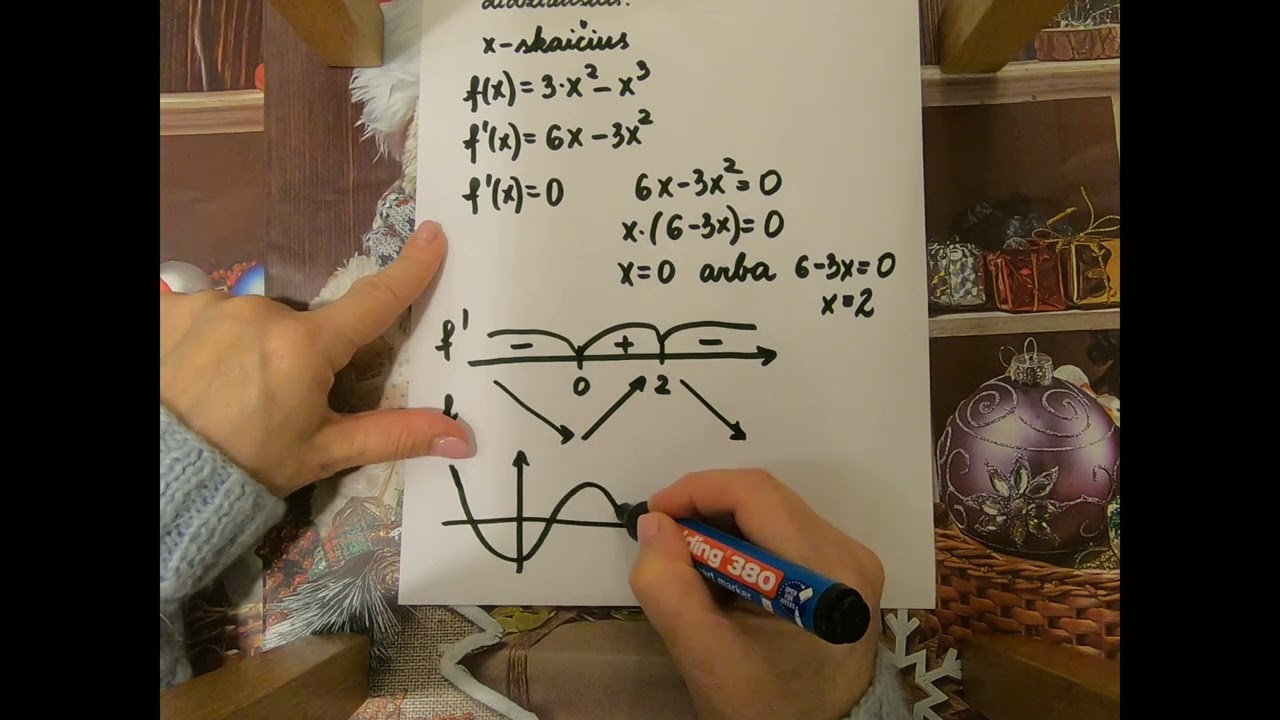 x-skaičius
f(x)=3·x²-x³
f'(x)=6x-3x²
f'(x)=0 6x-3x²=0
x·(6-3x)=0
x=0 arba 6-3x=0
x=2
f' - + -
0 2
ding 380